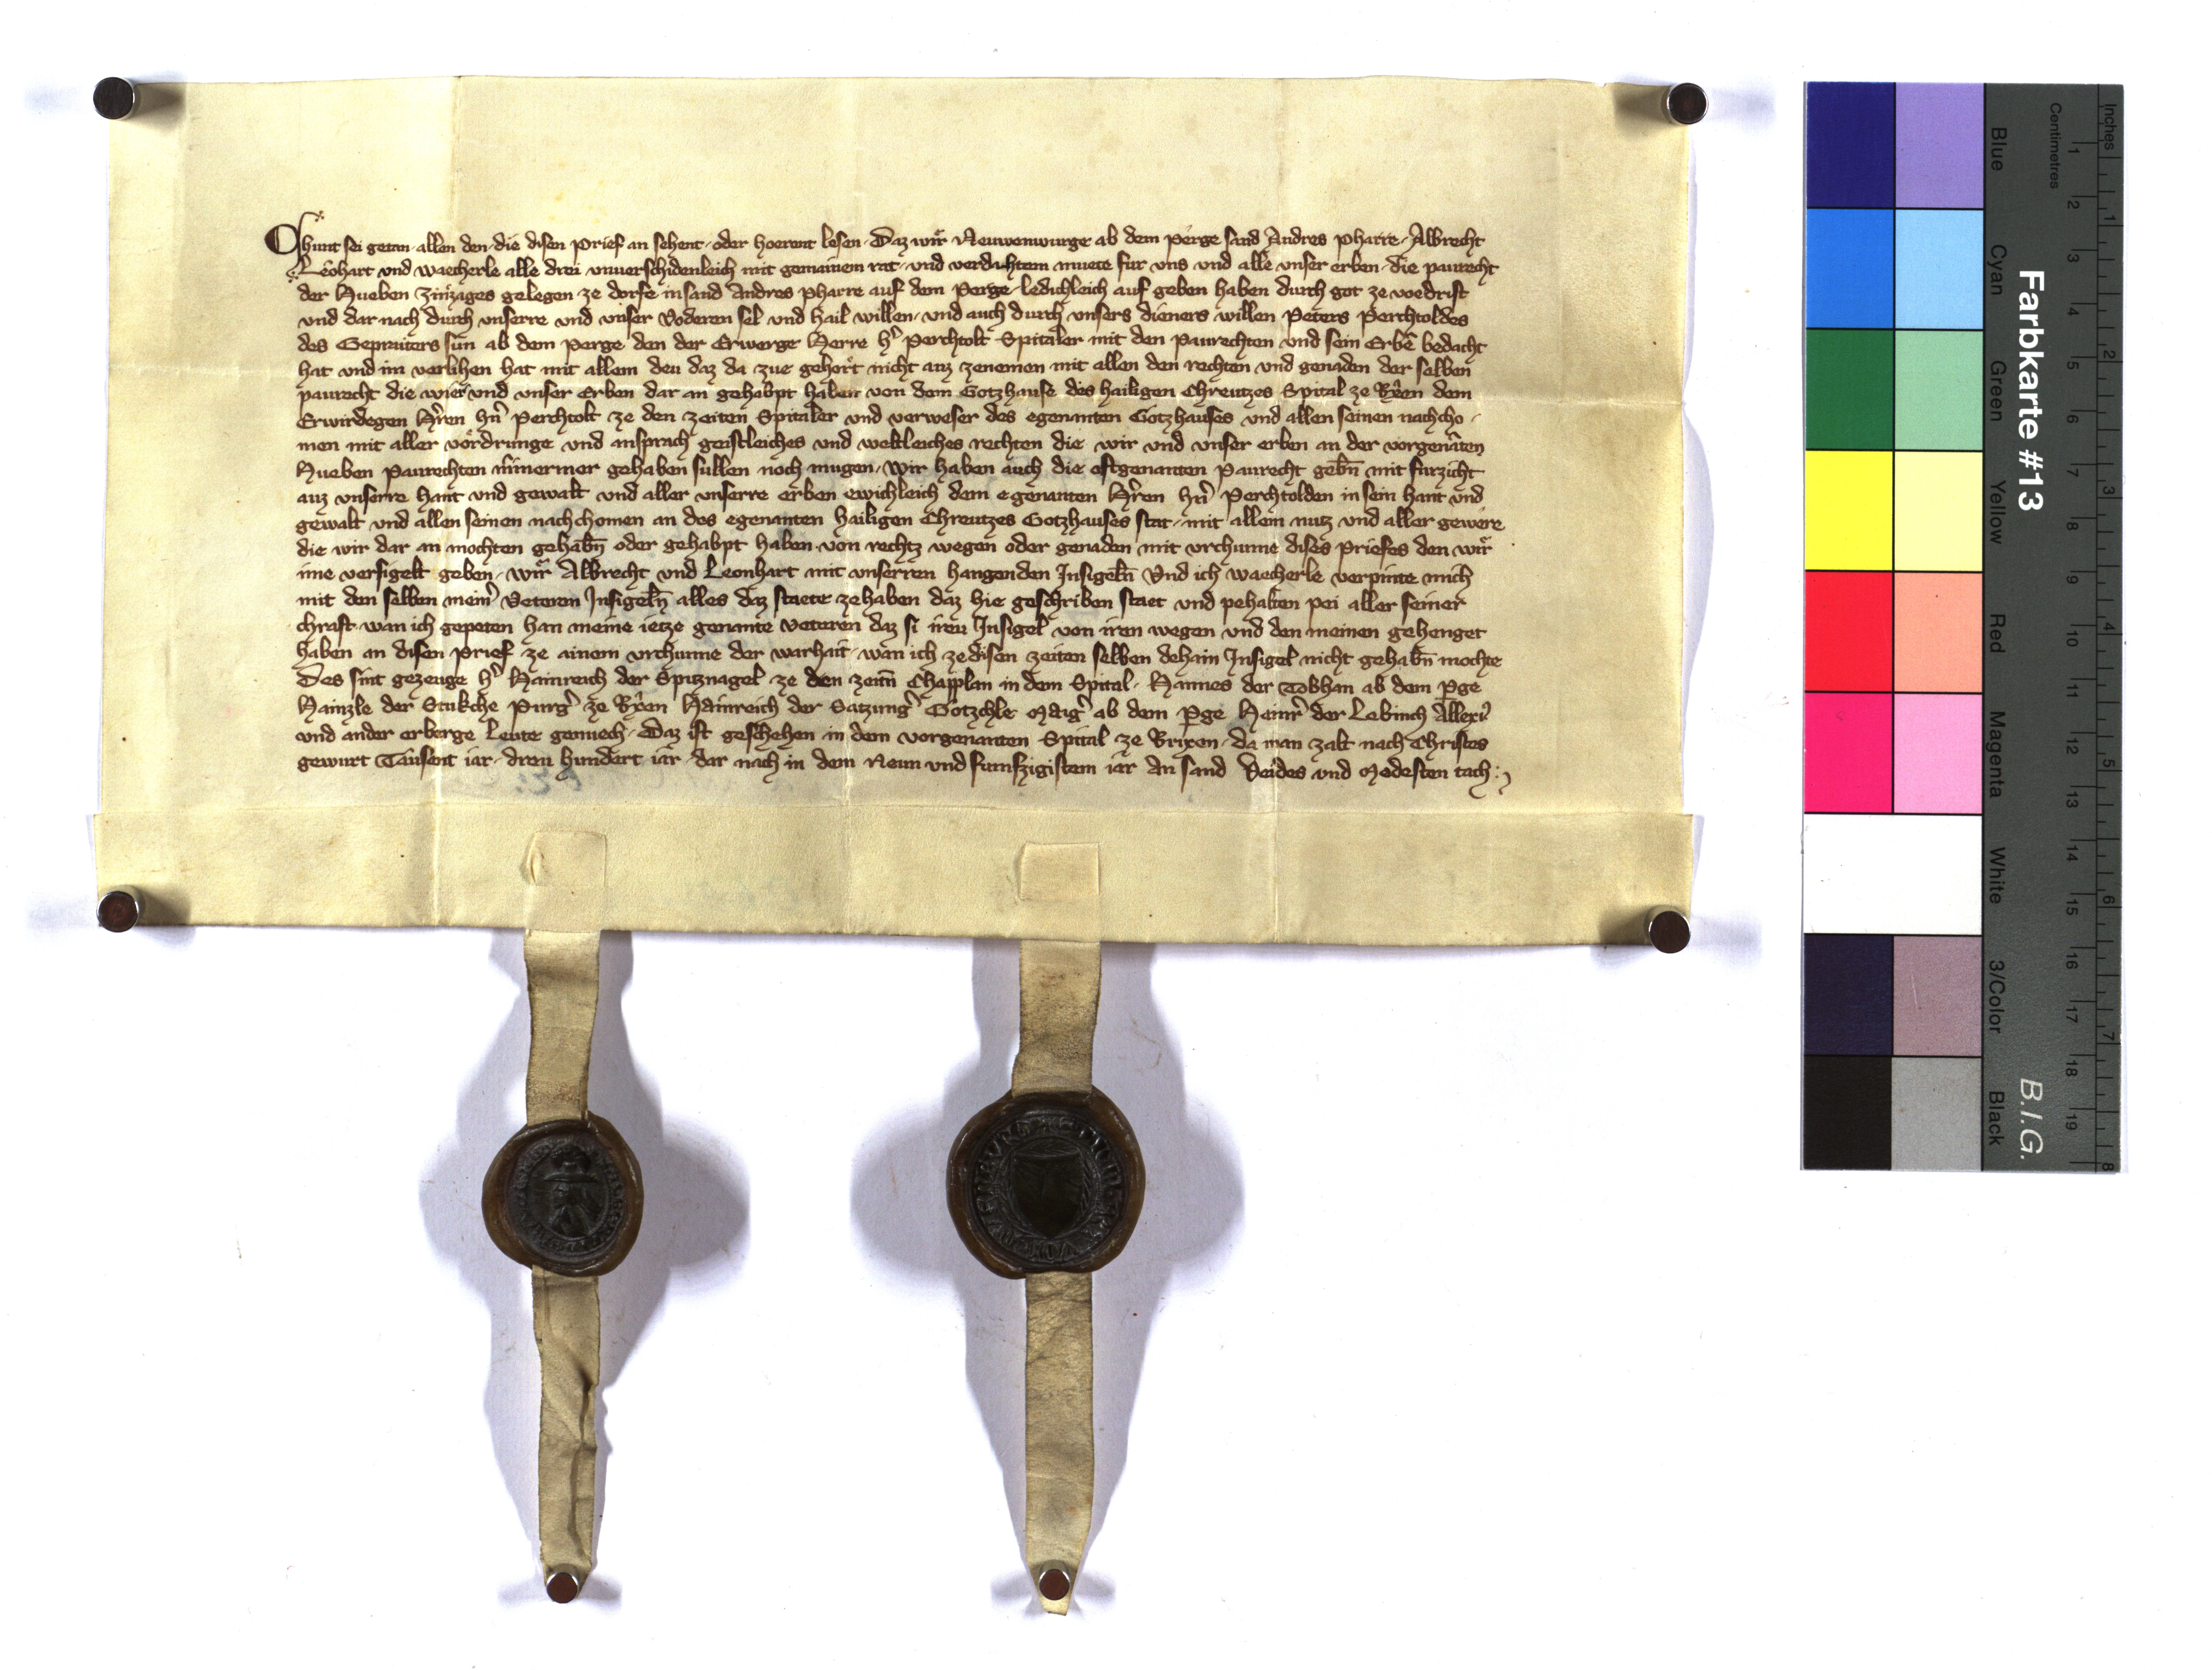 Chunt sei getan allen den die disen prief an sehent oder hoerent lesen Daz wir Neuwenwurge ab dem perge sand Andres pharre Albrecht
Leohart vnd waecherle alle drei vnuerschidenleich mit gemainem rat vnd verdachtem muete fur vns vnd alle vnser erben die paurecht
der Hueben zinzages gelegen ze dorfe in sand Andres pharre auf dem perge ledichleich auf geben haben durch got ze voedrist
vnd dar nach durch vnserre vnd vnser Voderen sel vnd hail willen vnd auch durch vnsers dieners willen Peters Perchtoldes
des Gepraiters sun ab dem perge den der Erwerge Herre hr Perchtolt Spitaler mit den Paurechten vnd sein Erbē bedacht
hat vnd im verlihen hat mit allem deu daz da zue gehort nicht auz zenemen mit allen den rechten vnd genaden der selben
paurecht die wier vnd vnser Erben dar an gehabpt haben von dem Gotzhause des hailigen Chreutzes Spital ze Brixen dem
Erwirdegen Hren hn Perchtolt ze den zeiten Spitaler vnd verweser des egenanten Gotzhauses vnd allen seinen nachcho
men mit aller vordrunge vnd ansprach geistleiches vnd weltleiches rechten die wir vnd vnser erben an der vorgenāten
Hueben paurechten nimermer gehaben sullen noch mugen wir haben auch die oftgenanten Paurecht gebn̄ mit furzicht
auz vnserre hant vnd gewalt vnd aller vnserre erben ewichleich dem egenanten Hren hn Perchtolden in sein hant vnd
gewalt vnd allen seinen nachchomen an des egenanten hailigen Chreutzes Gotzhauses stat mit allem nutz vnd aller gewere
die wir dar an mochten gehabn̄ oder gehabpt haben von rechtz wegen oder genaden mit vrchunne dises priefes den wir
ime versigelt geben wir Albrecht vnd Leonhart mit vnserren hangenden Insigeln̄ Vnd ich waecherle verpinte mich
mit den selben meinr Veteren Insigeln̄ alles daz staete zehaben daz hie geschriben staet vnd pehalten pei aller seiner
chraft wan ich gepeten han meine ietze genante Veteren daz si ireu Insigel von iren wegen vnd den meinen gehenget
haben an disen prief ze ainem vrchunne der warhait wan ich zedisen zeiten selben dehain Insigel nicht gehabn̄ mochte
Des sint gezeuge hr Hainreich der Spitznagel ze den zeitn̄ Chapplan in dem Spital Hannes der Tobhan ab dem pge
Hainzle der Stukche purgr ze Brixen Hainreich der Satzungr Gotzchle Maigr ab dem pge Heinr der Lebinch
vnd ander erberge Leute genuech Daz ist geschehen in dem vorgenanten Spital ze Brixen da man zalt nach Christes
gewurt Tausent iar dreu hundert iar dar nach in dem Neun vnd funfzigistem iar An sand Veides vnd Modesten tach
Farbkarte #13
B.I.G.
Inches
Centimetres
1 2 3 4 5 6 7 8 9 10 11 12 13 14 15 16 17 18 19
1 2 3 4 5 6 7 8
Blue Cyan Green Yellow Red Magenta White 3/Color Black